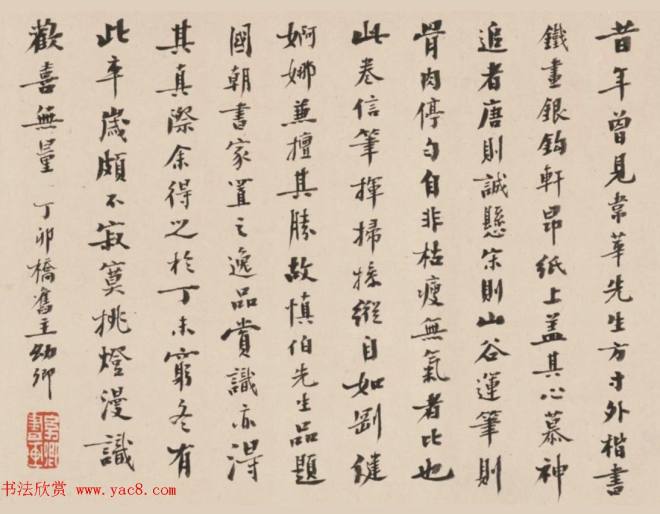 昔年曾見韋華先生方寸外楷書
鐵畫銀鈎軒昂紙上蓋其心慕神
追者唐則誠懸宋則山谷運筆則
骨肉停勻自非枯瘦無氣者比也
此卷信筆揮掃操縱自如剛健
婀娜兼擅其勝故慎伯先生品題
國朝書家置之逸品賞識亦得
其真際余得之於丁未窮冬有
此卒歲頗不寂寞挑燈漫識
歡喜無量 丁卯橋舊主幼卿
书法欣赏 www.yac8.com